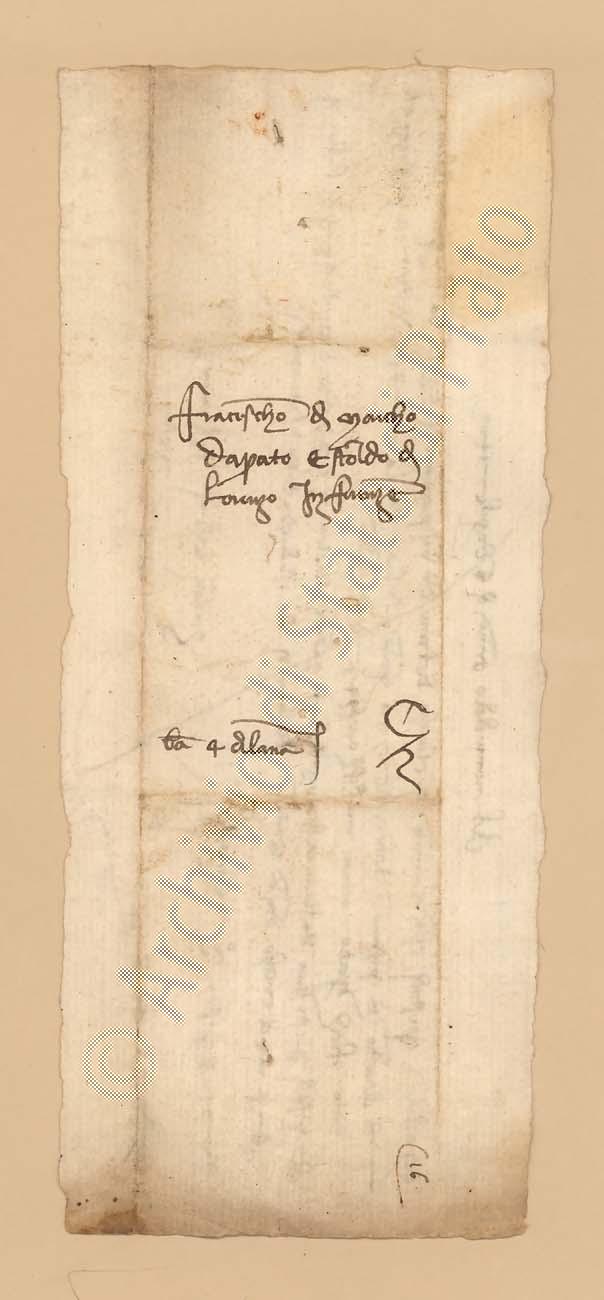 Francischo di Marcho
Daprato e Stoldo di
Lorenzo In Firenze
ba 4 di lana
91
© Archivio di Stato di Prato